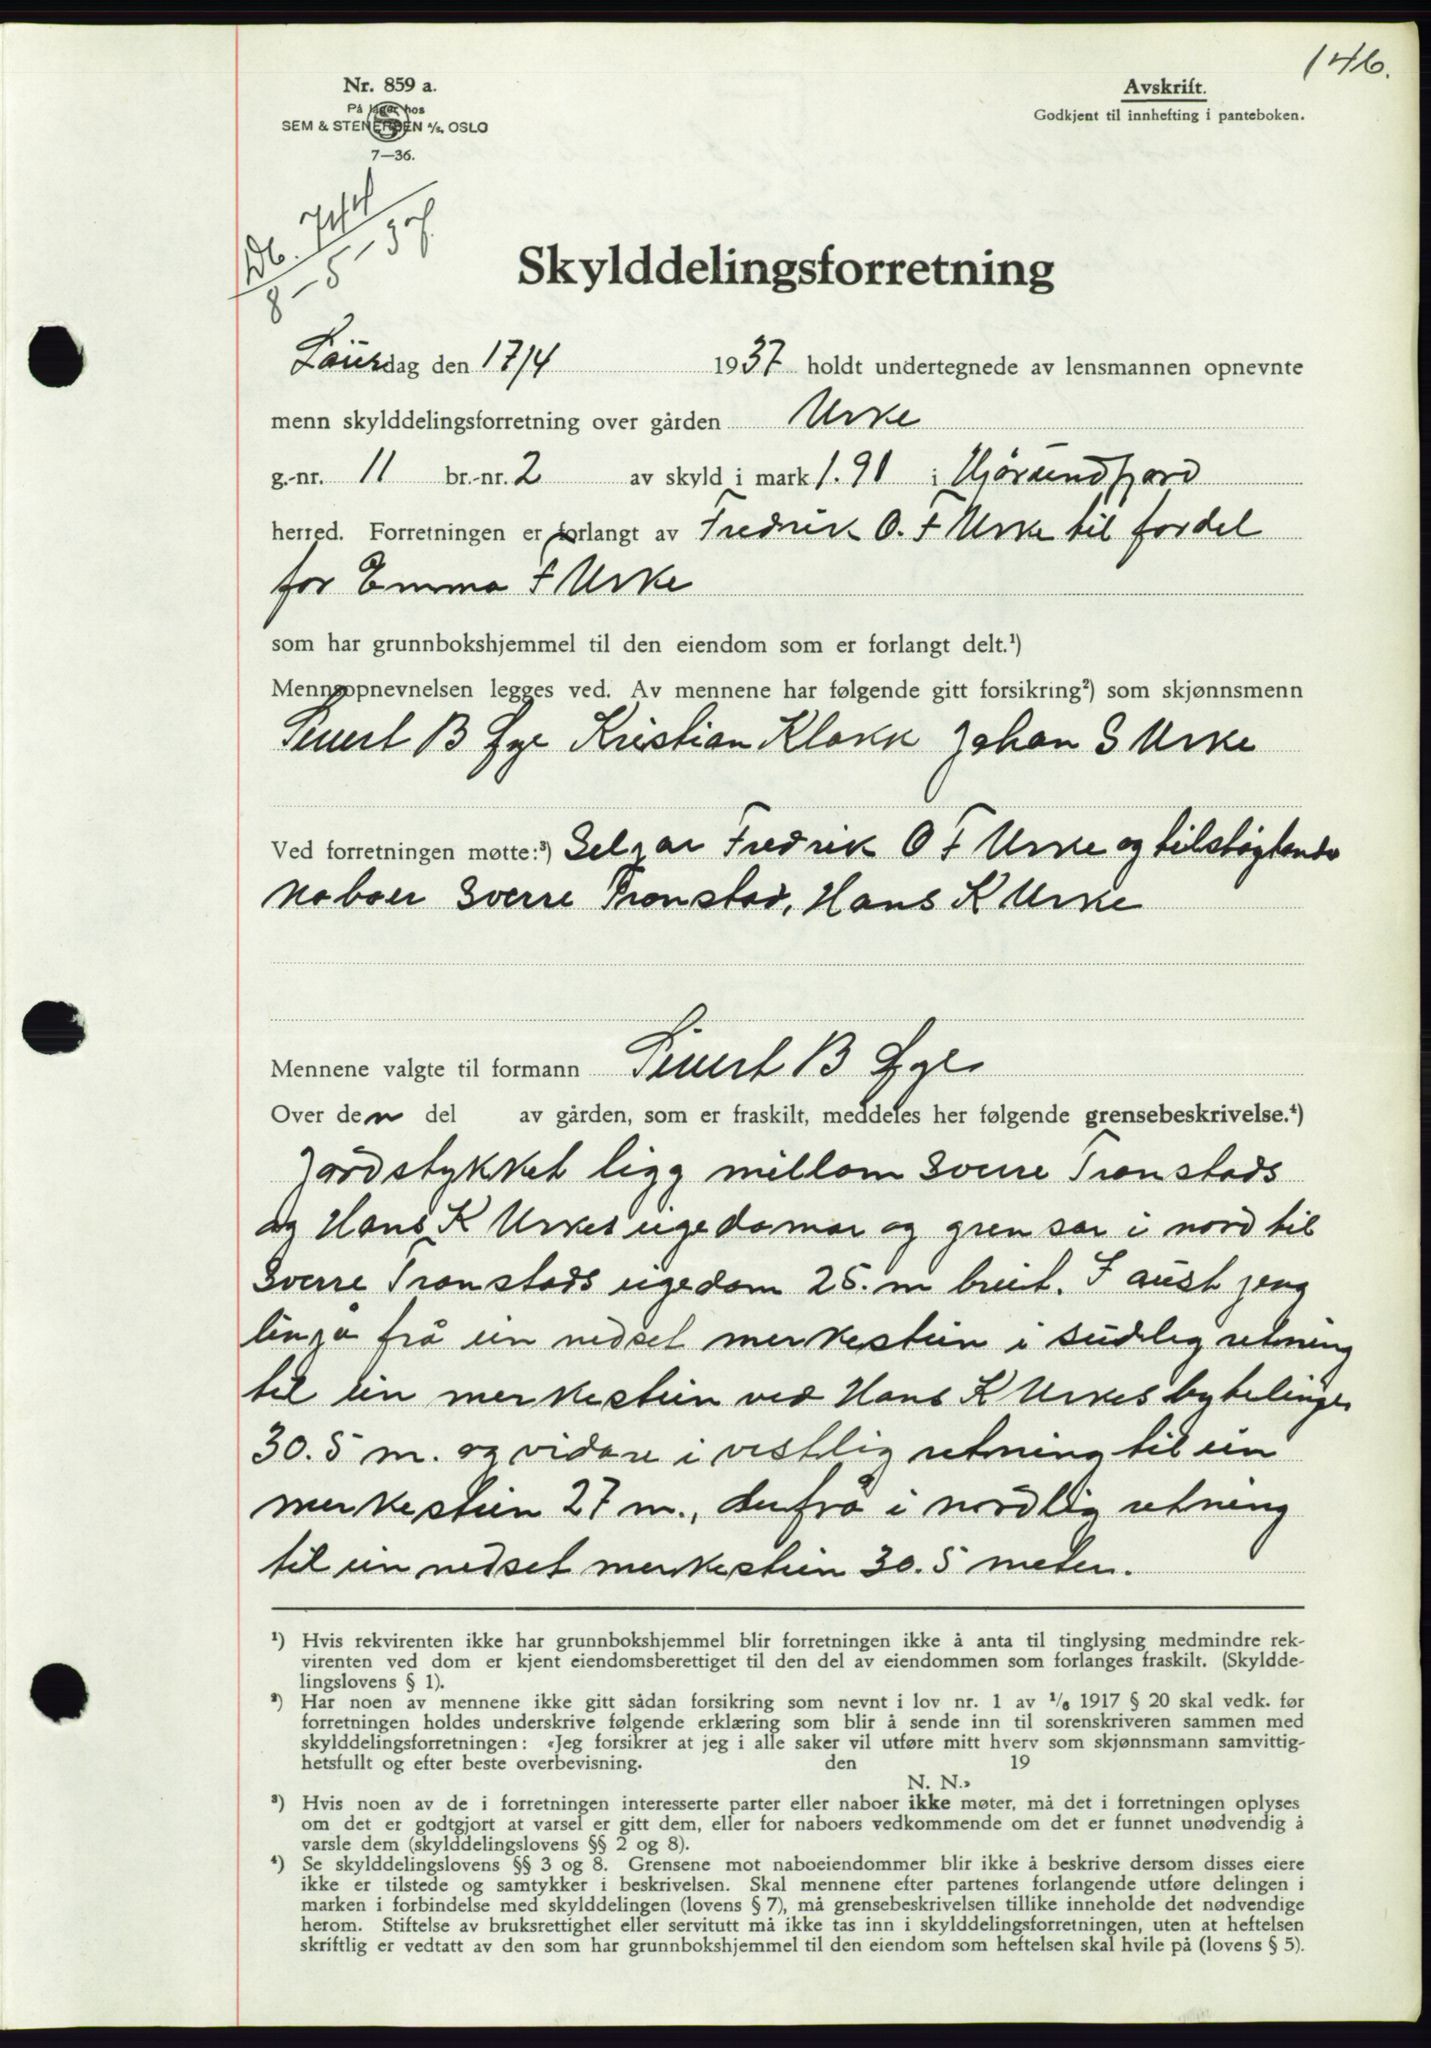 146.
Nr. 859 a.
På lager hos
SEM & STENERSEN A/S, OSLO
7—36.
Avskrift.
Godkjent til innhefting i panteboken.
Db. 744
8-5-37.
Skylddelingsforretning
Laurdag den 17/4 1937 holdt undertegnede av lensmannen opnevnte
menn skylddelingsforretning over gården Urke
g.-nr. 11 br.-nr. 2 av skyld i mark 1.91 i Hjørundfjord
herred. Forretningen er forlangt av Fredrik O. F Urke til fordel
for Emma F Urke
som har grunnbokshjemmel til den eiendom som er forlangt delt.¹)
Mennsopnevnelsen legges ved. Av mennene har følgende gitt forsikring²) som skjønnsmenn
Sivert B Øye Kristian Klokk Johan S Urke
Ved forretningen møtte:³) Seljar Fredrik O F Urke og tilstøytande
naboer Sverre Tronstad, Hans K Urke
Mennene valgte til formann Sivert B Øye
Over den del av gården, som er fraskilt, meddeles her følgende grensebeskrivelse.⁴)
Jordstykket ligg millom Sverre Tronstads
og Hans K Urkes eigedomar og grensar i nord til
Sverre Tronstads eigedom 25. m breit. I aust jeng
linja frå ein nedset merkestein i sudleg retning
til ein merkestein ved Hans K Urkes bytelinje
30.5 m. og vidare i vestlig retning til ein
merkestein 27 m., derfrå i nordlig retning
til ein nedset merkestein 30.5 meter.
¹) Hvis rekvirenten ikke har grunnbokshjemmel blir forretningen ikke å anta til tinglysing medmindre rek-
virenten ved dom er kjent eiendomsberettiget til den del av eiendommen som forlanges fraskilt. (Skyldde-
lingslovens § 1).
²) Har noen av mennene ikke gitt sådan forsikring som nevnt i lov nr. 1 av ¹/₆ 1917 § 20 skal vedk. før
forretningen holdes underskrive følgende erklæring som blir å sende inn til sorenskriveren sammen med
skylddelingsforretningen: «Jeg forsikrer at jeg i alle saker vil utføre mitt hverv som skjønnsmann samvittig-
hetsfullt og efter beste overbevisning. den 19
N. N.»
³) Hvis noen av de i forretningen interesserte parter eller naboer ikke møter, må det i forretningen oplyses
om det er godtgjort at varsel er gitt dem, eller for naboers vedkommende om det er funnet unødvendig å
varsle dem (skylddelingslovens §§ 2 og 8).
⁴) Se skylddelingslovens §§ 3 og 8. Grensene mot naboeiendommer blir ikke å beskrive dersom disses eiere
ikke er tilstede og samtykker i beskrivelsen. Skal mennene efter partenes forlangende utføre delingen i
marken i forbindelse med skylddelingen (lovens § 7), må grensebeskrivelsen tillike inneholde det nødvendige
herom. Stiftelse av bruksrettighet eller servitutt må ikke tas inn i skylddelingsforretningen, uten at heftelsen
skriftlig er vedtatt av den som har grunnbokshjemmel til den eiendom som heftelsen skal hvile på (lovens § 5).